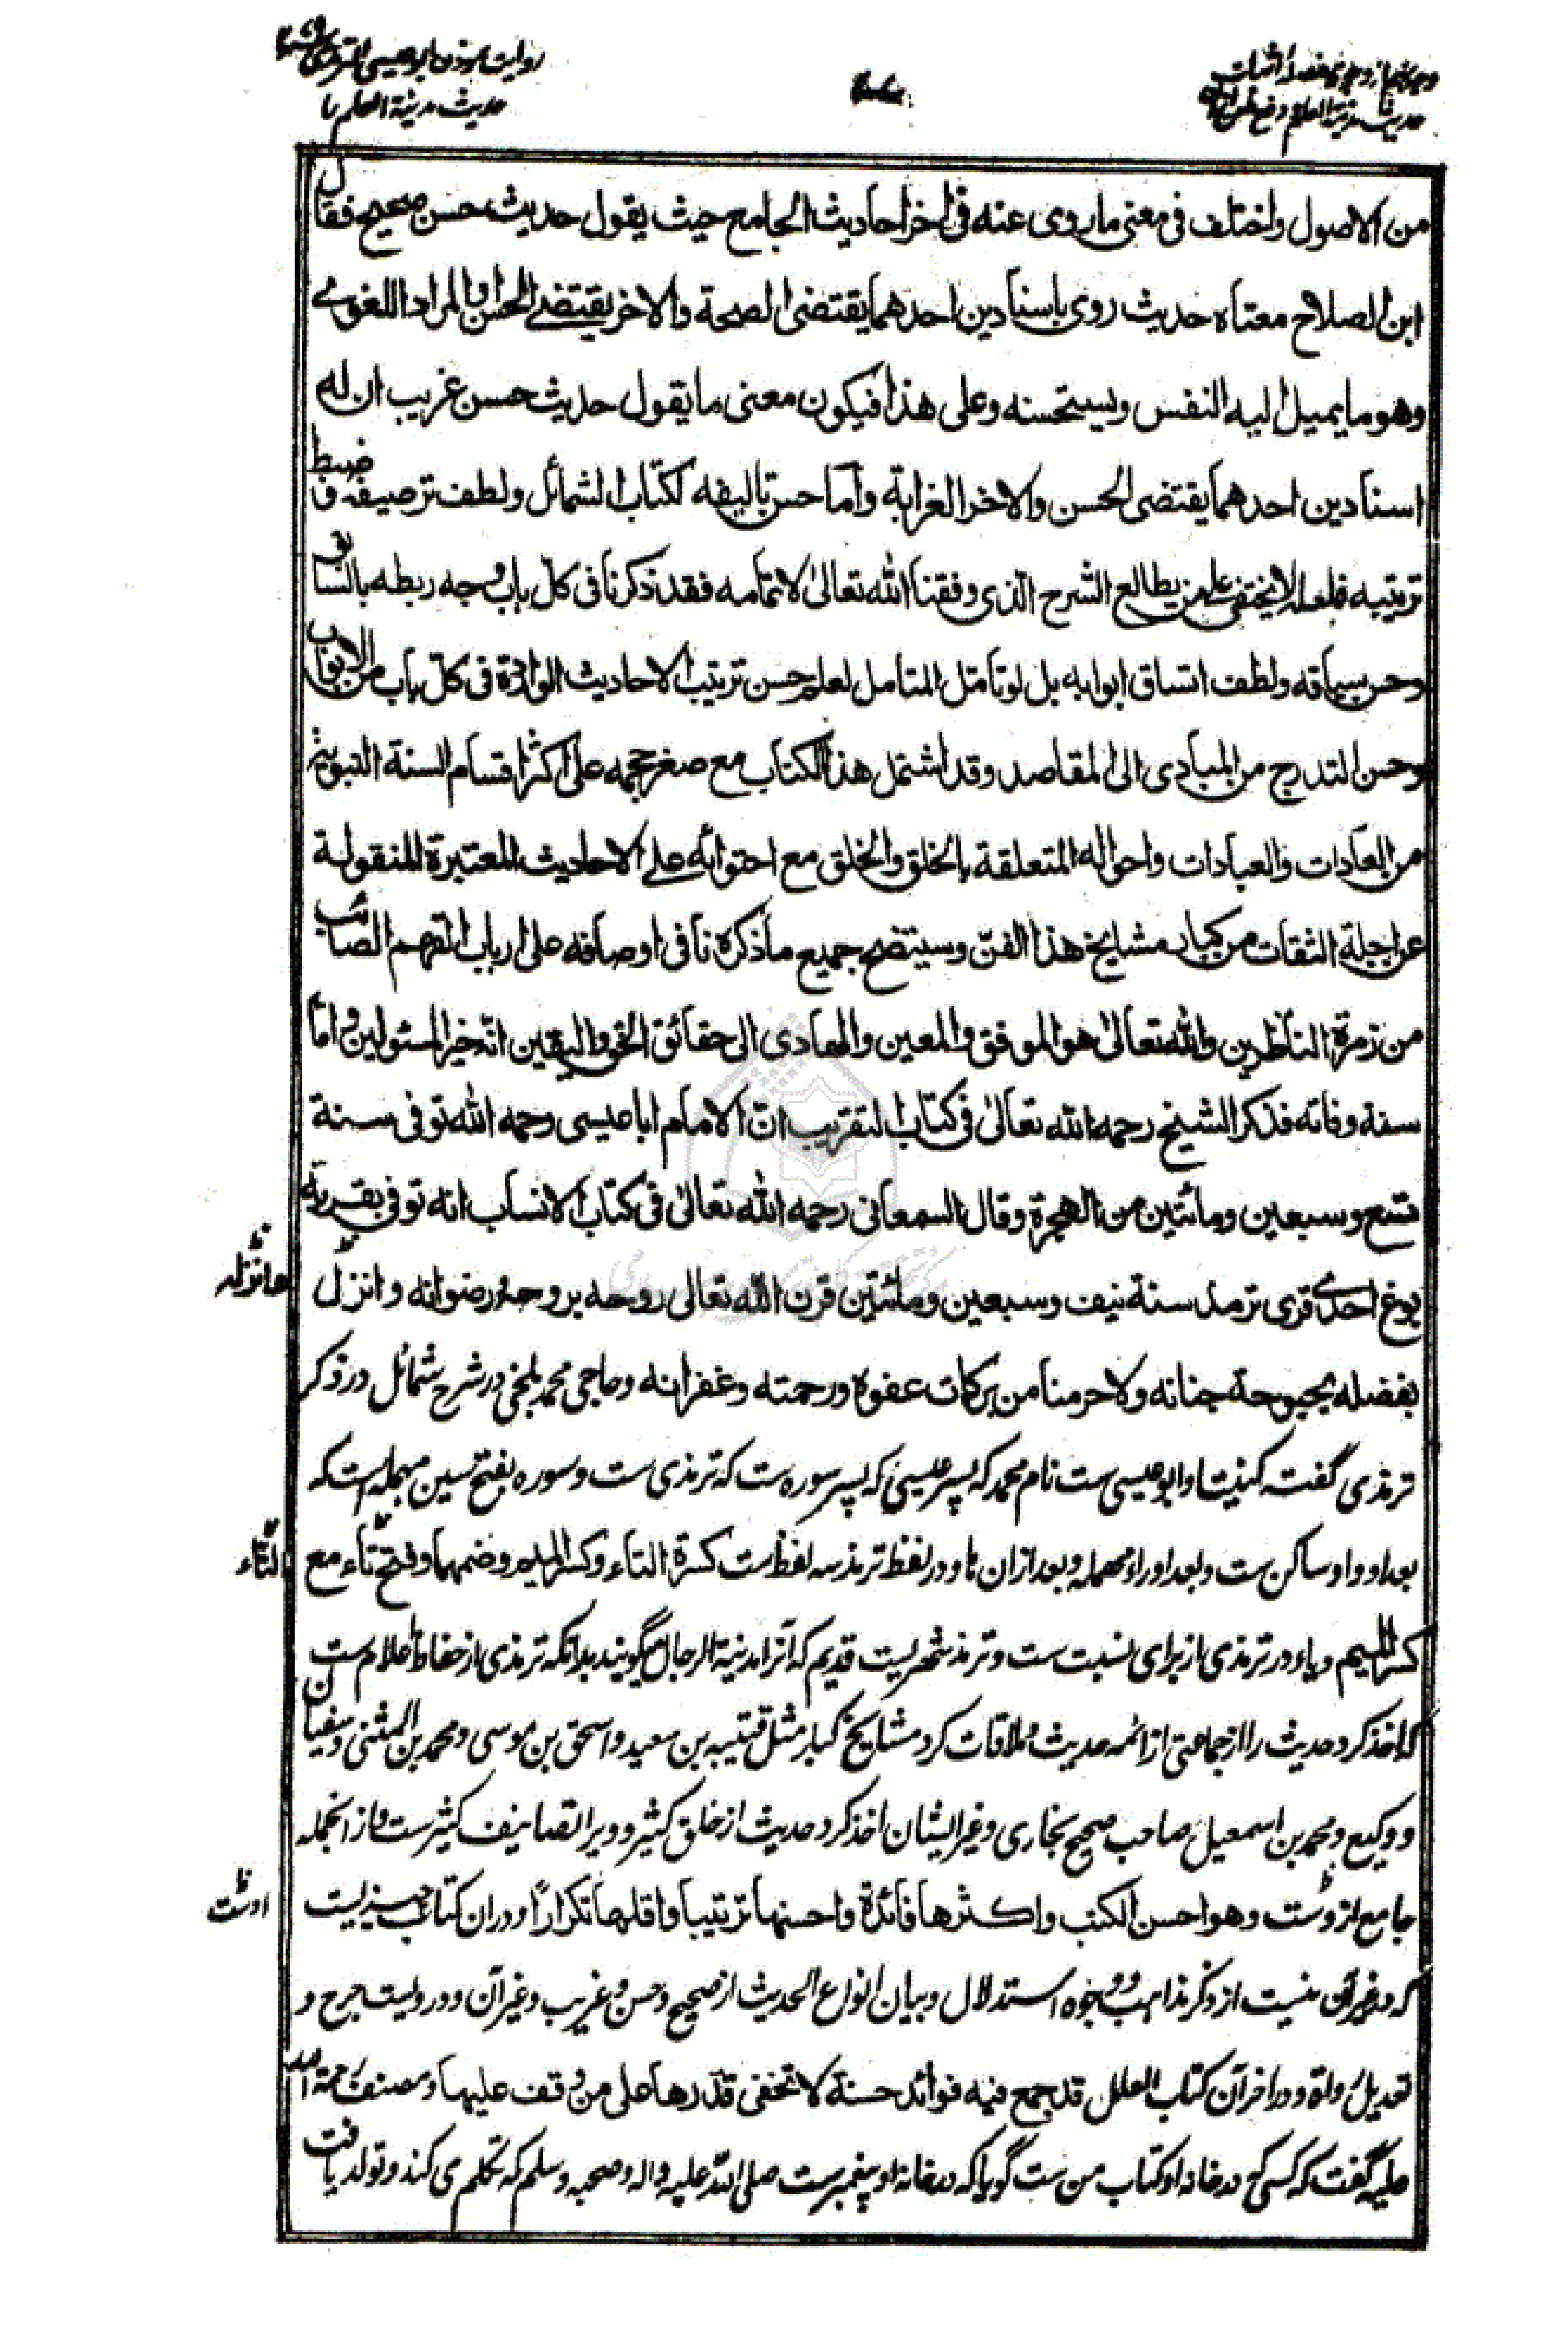 من الاصول واختلف فى معنى ما روى عنه فى اخر احاديث الجامع حيث يقول حديث حسن صحيح فقال
ابن الصلاح معناه حديث روى باسنادين احدهما يقتضى الصحة والاخر يقتضے الحسن او المراد اللغوے
وهو ما يميل اليه النفس ويستحسنه وعلى هذا فيكون معنى ما يقول حديث حسن غريب ان له
اسنادين احدهما يقتضى الحسن والاخر الغرابة وأما حسن تاليفه لكتاب الشمائل ولطف ترصيفه وضبط
ترتيبه فلعله لا يخفى على من يطالع الشرح الذى وفقنا الله تعالىٰ لاتمامه فقد ذكرنا فى كل باب وجه ربطه بالسابق
وحسن سياقه ولطف اتساق ابوابه بل لو تأمل المتامل لعلم حسن ترتيب الاحاديث الواردة فى كل باب من الابواب
وحسن التدرج من المبادى الى المقاصد وقد اشتمل هذا الكتاب مع صغر حجمه على اكثر اقسام السنة النبوية
من العادات والعبادات واحواله المتعلقة بالخلق والخلق مع احتوائه علے الاحاديث المعتبرة المنقولة
عن اجلة الثقات من كبار مشايخ هذا الفن وسيتضح جميع ما ذكرنا فى اوصافه على ارباب الفهم الصائب
من زمرة الناظرين والله تعالىٰ هو الموفق والمعين والهادى الى حقائق الحق واليقين انه خير المسئولين واما
سنة وفاته فذكر الشيخ رحمه الله تعالىٰ فى كتاب التقريب ان الامام ابا عيسى رحمه الله توفى سنة
تسع وسبعين ومائتين من الهجرة وقال السمعانى رحمه الله تعالىٰ فى كتاب الانساب انه توفى بقرية
بوغ احدے قرى ترمذ سنة نيف وسبعين ومائتين قرن الله تعالى روحه بروحه ورضوانه وانزل
بفضله بحبوحة جنانه ولا حرمنا من بركات عفوه ورحمته وغفرانه وحاجى محمد بلخى در شرح شمائل در ذكر
ترمذى گفته كنيت او ابو عيسى ست نام محمد كه پسر عيسىٰ كه پسر سوره ست كه ترمذى ست وسوره بفتح سين مهمله است كه
بعد او واو ساكن ست وبعد او راء مهمله وبعد ازان ها ودر لفظ ترمذ سه لفظ ست كسرة التاء وكسر الميم وضمهما وفتح تاء مع
كسر الميم وياء در ترمذى از براى نسبت ست وترمذ شهريست قديم كه آنرا مدينة الرجال ميگويند بدانكه ترمذى از حفاظ اعلام ست
كه اخذ كرد حديث را از جماعتى از ائمه حديث وملاقات كرد مشايخ كبار مثل قتيبه بن سعيد واسحق بن موسى ومحمد بن المثنى وسفيان
ووكيع ومحمد بن اسمعيل صاحب صحيح بخارى وغير ايشان اخذ كرد حديث از خلق كثير وويرا تصانيف كثير ست واز انجمله
جامع ازوست وهو احسن الكتب واكثرها فائدة واحسنها ترتيبا واقلها تكراراً ودران كتاب چيزيست
كه در غير آن نيست از ذكر مذاهب ووجوه استدلال وبيان انواع الحديث از صحيح وحسن وغريب وغير آن ودرويست جرح و
تعديل رواة ودر اخر آن كتاب العلل قد جمع فيه فوائد حسنة لا تخفى قدرها على من وقف عليها ومصنف رحمة الله
عليه گفت كه كسى كه در خانه او كتاب من ست گويا كه در خانه او پيغمبر ست صلى الله عليه واله وصحبه وسلم كه تكلم مى كند وتولد يافت
وانزله
التاء
اوست
روايت نمودن ابو عيسى الترمذى
حديث مدينة العلم را